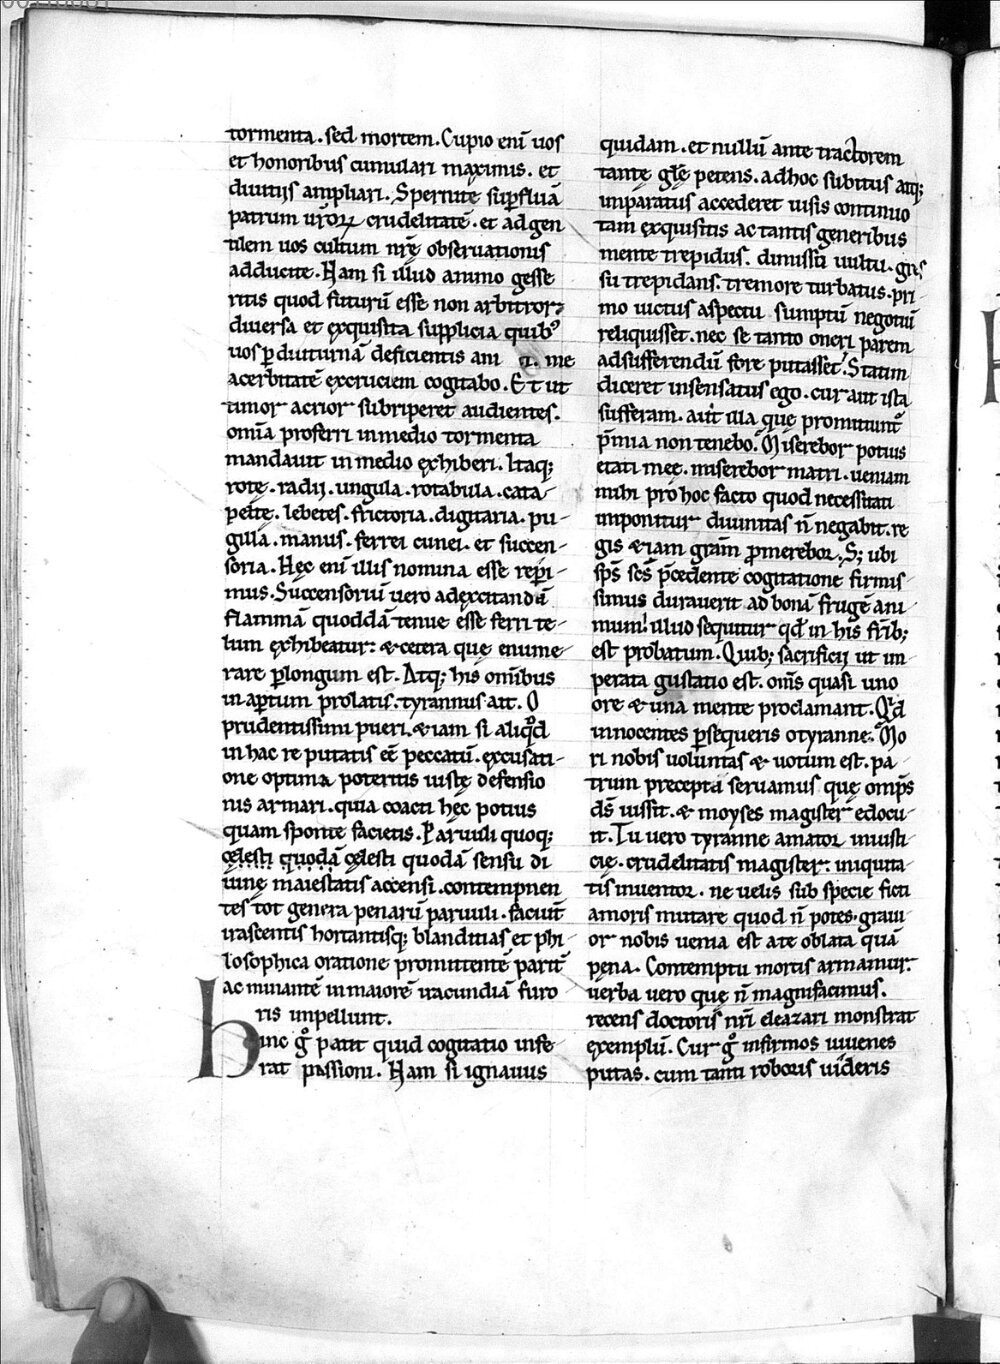 tormenta. sed mortem. Cupio eni̅ uos
et honoribus cumulari maximis. et
diuitijs ampliari. Spernite sup̱fluã
patrum ur̅oꝝ crudelitate̅. et ad gen
tilem uos cultum nr̅ę obseruationis
adducite. Nam si illud animo gesse
ritis quod futuru̅ esse non arbitror
diuersa et exquisita supplicia quib9
uos p̱ diuturna̅ deficientis ani
acerbitate̅ excruciem cogitabo. Et ut
timor acrior subriperet audientes.
omi̅a proferri in medio tormenta
mandauit in medio exhiberi. Itaq;
rotę. radij. ungula. rotabula. cata
peltę. lebetes. frictoria. digitaria. pu-
gilla. manus. ferrei cunei. et succen-
soria. Hęc eni̅ illis nomina esse rep̱i-
mus. Succensoriu̅ uero ad excitanda̅
flamma̅ quodda̅ tenue esse ferri te-
lum exhibeatur: & cetera que enume-
rare p̱longum est. Atq; his om̅ibus
in ap̱tum prolatis. tyrannus ait. O
prudentissimi pueri. & iam si aliqͦd
in hac re putatis ee̅ peccatu̅. excusati-
one optima poteritis iustę defensio
nis armari. quia coacti hęc potius
quam sponte facietis. Paruuli quoq;
cęlesti quoda̅ cęlesti quoda̅ sensu di
uinę maiestatis accensi. contempnen
tes tot genera penaru̅ paruuli. faciu̅t
irascentis hortantisq; blanditias et phi-
losophica oratione promittente̅ parit̅
ac minante̅ in maiore̅ iracundia̅ furo
ris impellunt.
Hinc gͦ patit quid cogitatio infe
rat passioni. Nam si ignauus
quidam. et nullu̅ ante tractorem
tantę gl̅ę petens. ad hoc subitus atq;
imparatus accederet uisis continuo
tam exquisitis ac tantis generibus
mente trepidus. dimissu̅ uultu. gres
su trepidans. tremore turbatus. pri-
mo uictus aspectu sumptu̅ negotiu̅
reliquisset. nec se tanto oneri parem
ad sufferendu̅ fore putasset. Statim
diceret insensatus ego. cur aut ista
sufferam. aut illa que promittuntͬ
p̅mia non tenebo. Miserebor potius
etati meę. miserebor matri. ueniam
mihi pro hoc facto quod necessitati
imponitur diuinitas n̅ negabit. re
gis & iam gra̅m p̱merebor. S; ubi
sp̅s sc̅s p̅cedente cogitatione firmis-
simus durauerit ad bona̅ fruge̅ ani-
mum! illud sequitur qd̅ in his fr̅ib;
est probatum. Quib; sacrificij ut im-
perata gustatio est. om̅s quasi uno
ore & una mente proclamant. Qͥd
innocentes p̱sequeris o tyranne. Mo
ri nobis uoluntas & uotum est. pa-
trum precepta seruamus que omp̅s
ds̅ iussit. & moyses magister edocu-
it. Tu uero tyranne amator iniusti-
cię. crudelitatis magister: iniquita-
tis inuentor. ne uelis sub specie ficti
amoris mutare quod n̅ potes. graui-
or nobis uenia est a te oblata qua̅
pęna. Contemptu mortis armamur.
uerba uero que n̅ magnifacimus.
recens doctoris nr̅i eleazari monstrat
exemplu̅. Cur gͦ infirmos iuuenes
putas. cum tanti roboris uideris